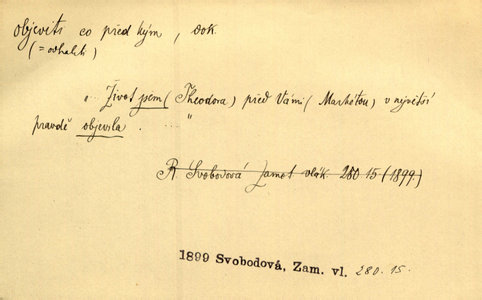 objeviti co před kým, dok.
(= odhaliti)
„Život jsem (Theodora) před Vámi (Markétou) v největší
pravdě objevila."
R. Svobodová Zamot. vlák. 280 15 (1899)
1899 Svobodová, Zam. vl. 280.15.